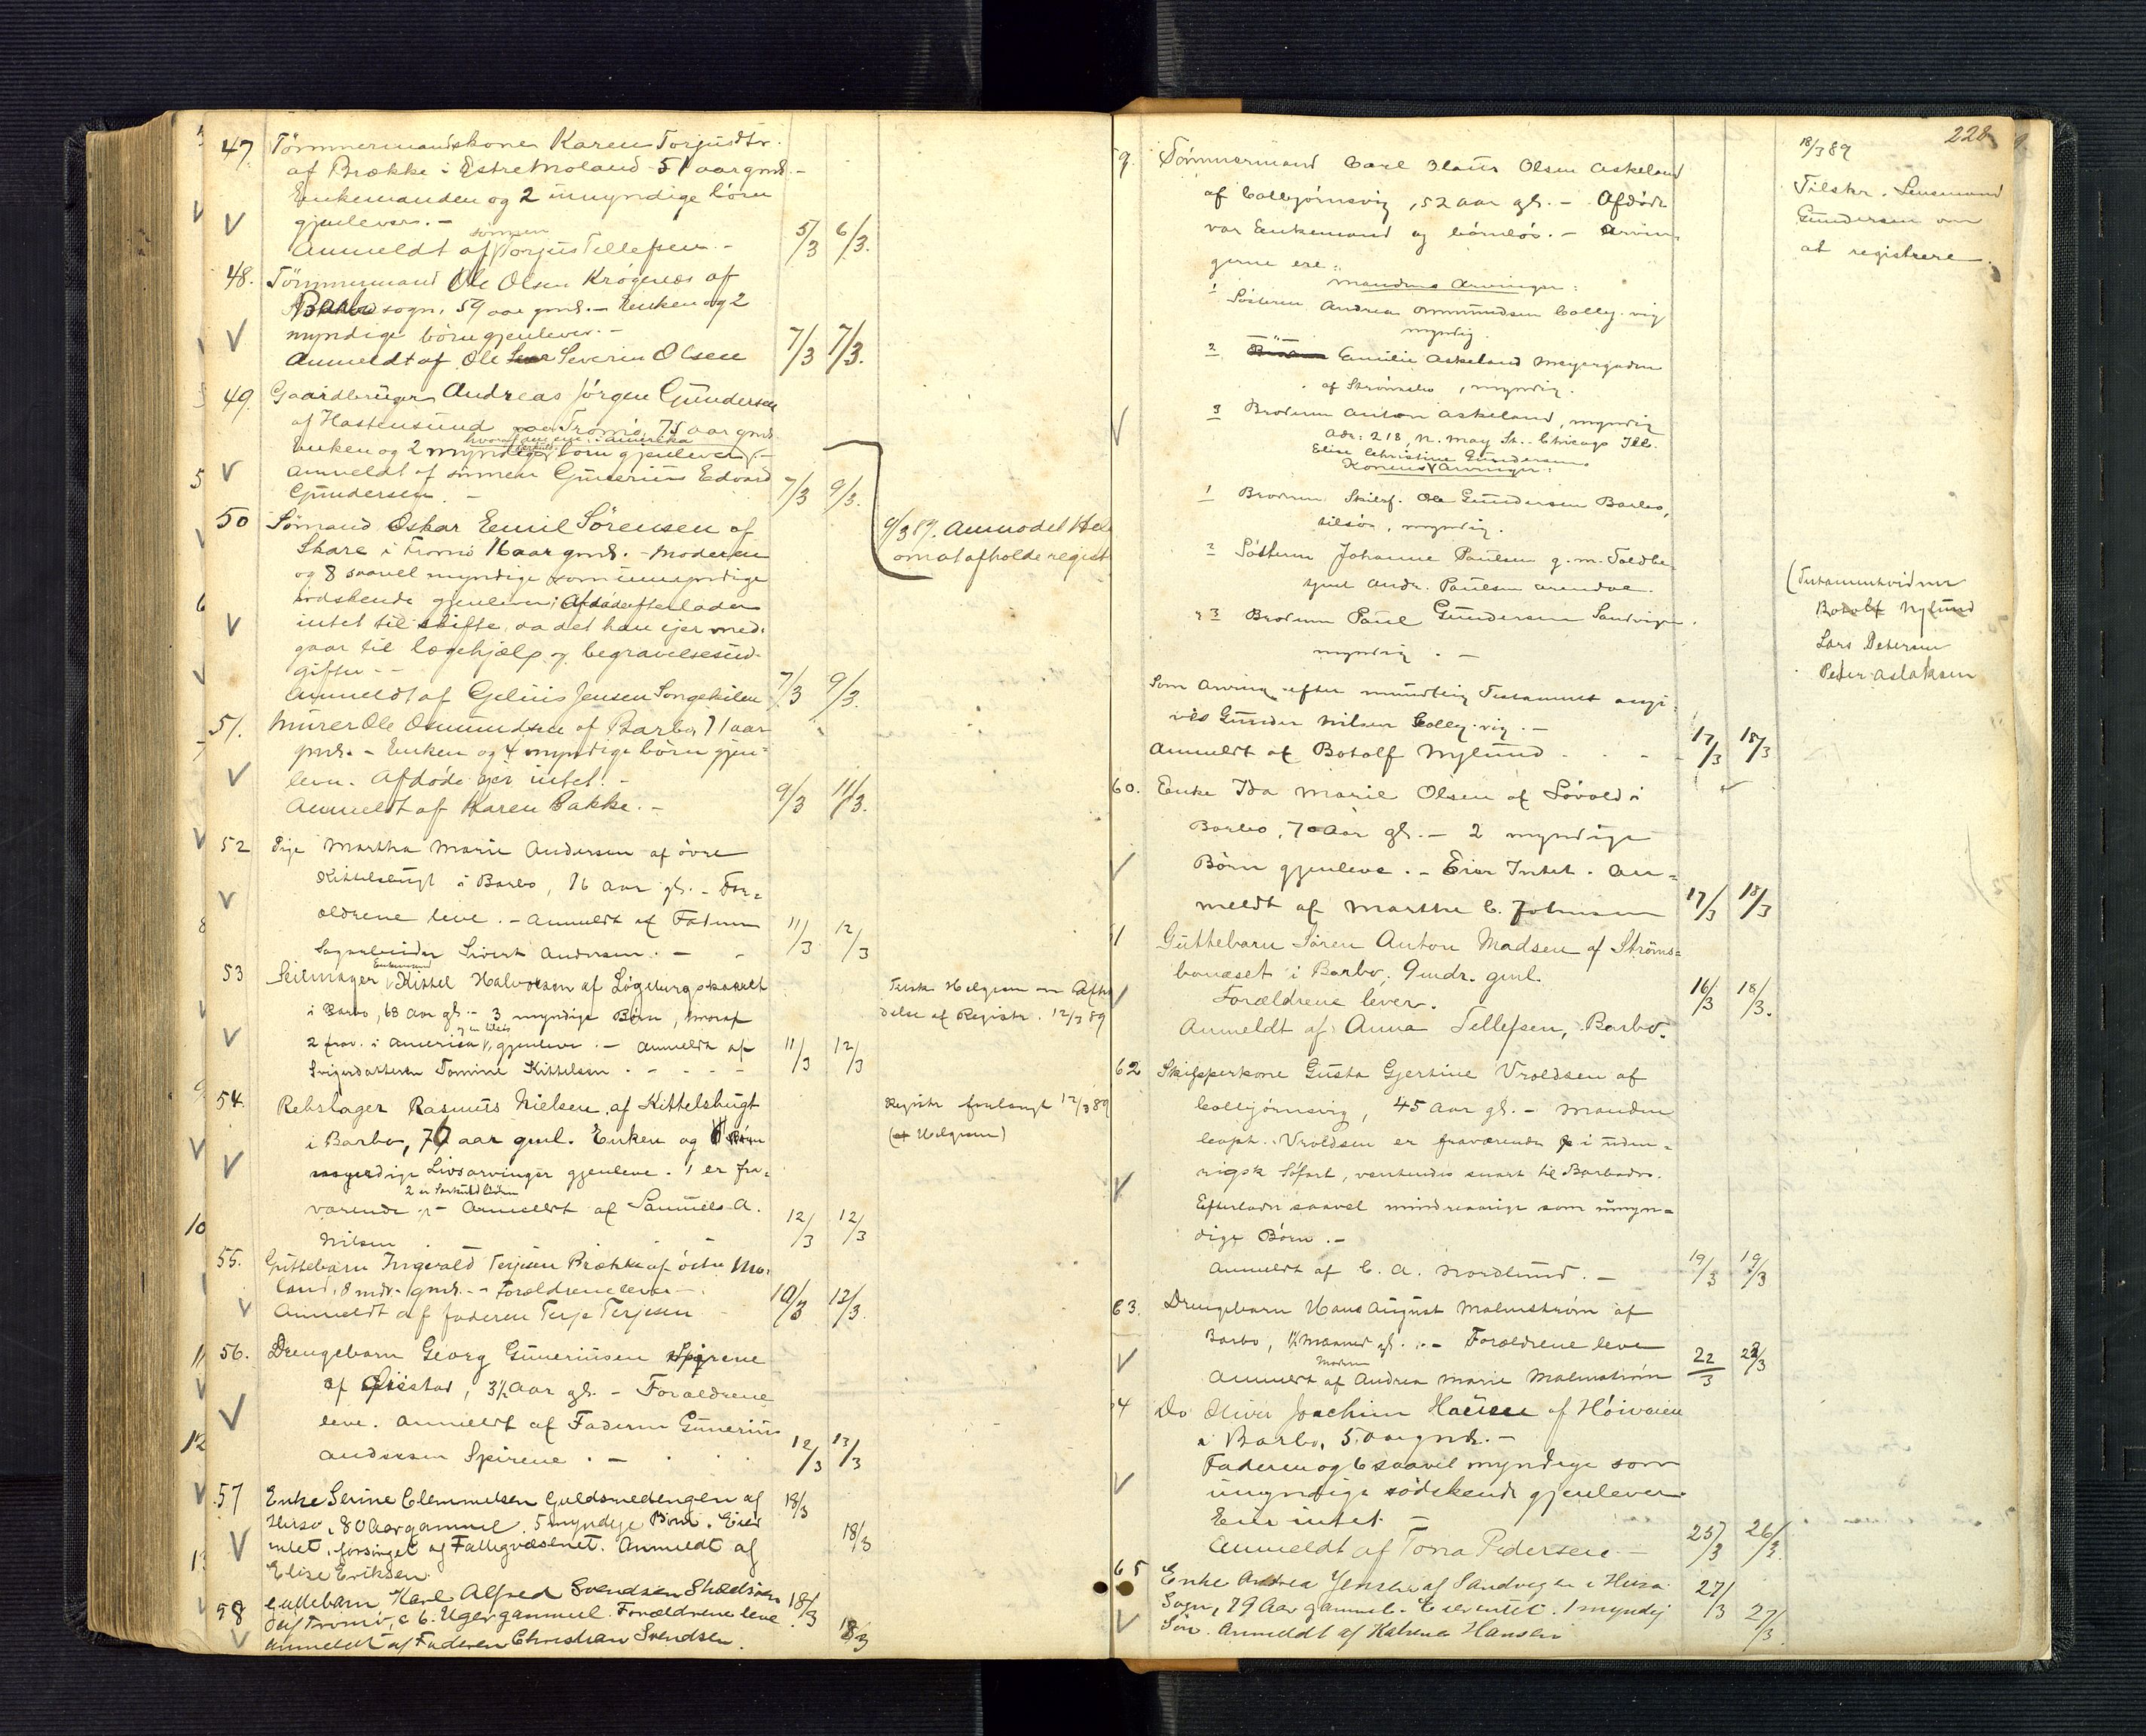 47. Tömmermandskone Karen Torjusdtr.
af Brække i Østre Moland 51 aar gml. -
Enkemanden og 2 umyndige börn
gjenlever. -
Anmeldt af sönnen Torjus Tellefsen. - 5/3 6/3.
48. Tömmermand Ole Olsen Krögenes af
Barbo sogn, 59 aar gml. - Enken og 2
myndige börn gjenlever. -
Anmeldt af Ole Severin Olsen 7/3 7/3.
49. Gaardbruger Andreas Jörgen Gundersen
af Hastensund paa Tromö, 75 aar gml.
hvoraf den ene i Amerika
Enken og 2 myndige börn gjenlever. -
Anmeldt af sönnen Gunerius Edvard
Gundersen. - 7/3 9/3.
50 Sömand Oskar Emil Sörensen af
Skare i Tromö 16 aar gml. - Moderen
og 8 saavel myndige som umyndige
södskende gjenlever; Afdöde efterlader
intet til skifte, da det han ejer med-
gaar til lægehjælp og begravelsesud-
gifter. -
Anmeldt af Gelius Jensen Songekilen 7/3 9/3.
9/3 89. Anmodet Hel
om at afholde regist
51. Murer Ole Osmundsen af Barbo, 71 aar
gml. - Enken og 4 myndige börn gjen-
lever. Afdöde ejer intet. -
Anmeldt af Karen Bakke. - 9/3 11/3.
52 Pige Martha Marie Andersen af övre
Kittelsbugt i Barbo, 16 Aar gl. - For-
ældrene leve. - Anmeldt af Faderen
Sivert Andersen. - 11/3 12/3
53 Seilmager Enkemand Kittel Halvorsen af
i Barbo, 68 Aar gl. - 3 myndige Börn, hvoraf
2 frav. i Amerika, gjenleve. - Anmeldt af
Svigerdatteren Tomine Kittelsen. - - - 11/3 12/3
Helgesen om Afhol
delse af Registr. 12/3 89
54. Rebslager Rasmus Nielsen af Kittelsbugt
i Barbo, 76 aar gml. Enken og Börn
myndige Livsarvinger gjenleve. 1 er fra-
2 er Særkuldbörn
værende. - Anmeldt af Samuel A.
Nilsen 12/3 12/3
Registr. forlangt 12/3 89
(Helgesen)
55. Guttebarn Ingevald Terjesen Brække af östre Mo-
land, 8 mdr. gml. - Forældrene leve -
Anmeldt af faderen Terje Terjesen 10/3 12/3.
56. Drengebarn Georg Guneriusen Spirene
af 3½ Aar gl. - Forældrene
leve. Anmeldt af Faderen Gunerius
Andersen Spirene. - 12/3 13/3
57 Enke Serine Clemmetsen Guldsmedengen af
Hisö, 80 Aar gammel. 5 myndige Börn. Eier
intet, forsörget af Fattigvæsenet. Anmeldt af
Elise Eriksen. 18/3 18/3
58 Guttebarn Karl Alfred Svendsen
Tromö, c 6 Uger gammel. Forældrene leve.
Anmeldt af Faderen Christian Svendsen. 18/3 18/3
228
9. Tömmermand Carl Olaus Olsen Askeland
af Colbjörnsvig, 52 aar gl. - Afdöde
var Enkemand og barnlös. - Arvin-
gerne ere:
Mandens Arvinger:
1 Sösteren Andrea Ommundsen Colbj.vig
myndig
2 Emilie Askeland Meyergaden
af Strömsbo, myndig.
3 Broderen Anton Askeland, myndig
Adr: 218, N. May St. Chicago Ill.
Elise Christine Gundersens
Konens Arvinger:
1 Broderen Skibsf. Ole Gundersen Barbo,
tilsös, myndig.
2 Sösteren Johanne Paulsen g. m. Toldbe-
tjent Andr. Paulsen Arendal.
3 Broderen Paul Gundersen Sandvigen.
myndig. -
Som Arving efter mundtlig Testament angi-
ves Gunder Nilsen Colbj.vig. -
Anmeldt af Botolf Nylund - - - 17/3 18/3
18/3 89
Tilskr. Lensmand
Gundersen om
at registrere.
(Testamentvidner
Botolf Nylund
Lars Petersen
Peder Aslaksen
60. Enke Ida Marie Olsen af Lövold i
Barbo, 70 Aar gl. - 2 myndige
Börn gjenleve. - Eier Intet. An-
meldt af Marthe C. Johnsen 17/3 18/3
61 Guttebarn Sören Anton Madsen af Ströms-
bonæset i Barbo. 9 mdr. gml.
Forældrene lever.
Anmeldt af Anna Tellefsen, Barbo. 16/3 18/3.
62 Skipperkone Gusta Gjertine Vroldsen af
Colbjörnsvig, 45 Aar gl. - Manden
Vroldsen er fraværende i uden-
rigsk Söfart, ventendes snart til Barbados.
Efterlader saavel mindreaarige som umyn-
dige Börn. -
Anmeldt af C. A. Nordlund. - 19/3 19/3
63. Drengebarn Hans August Malmström af
Barbo, 1½ Maaned gl. - Forældrene leve
Anmeldt af Moderen Andrea Marie Malmström 22/3 22/3
64 Do Oliver Joachim Hansen af Höivaien
i Barbo, 5 Aar gml. -
Faderen og 6 saavel myndige som
umyndige södskende gjenlever.
Eier intet. -
Anmeldt af Tona Pedersen - 25/3 26/3.
65 Enke Andrea Jensen af Sandvigen i Hisö
Sogn, 79 Aar gammel. Eier intet. 1 myndig
Sön. Anmeldt af Katrine Hansen 27/3 27/3.